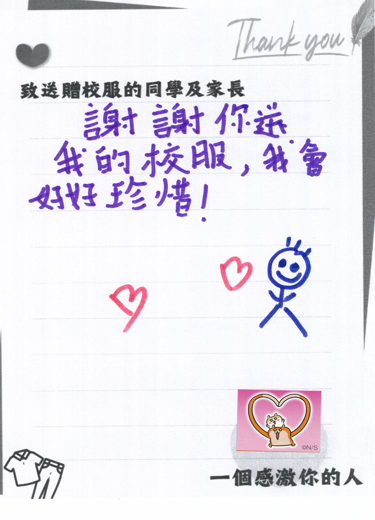 Thank you
致送贈校服的同學及家長
謝謝你送
我的校服,我會
好好珍惜!
©N/S
一個感激你的人